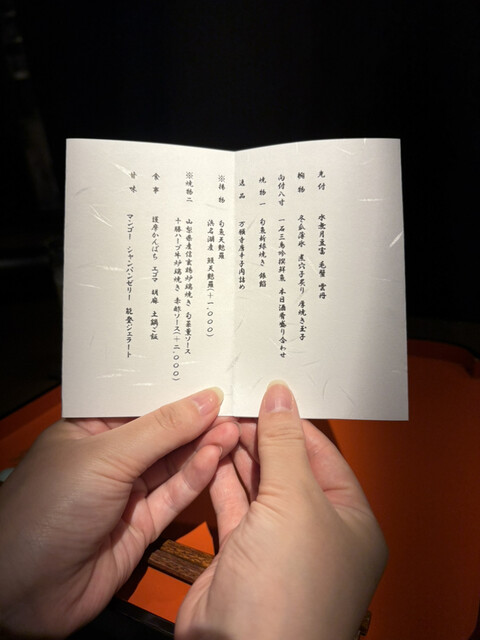 先付　水無月豆富　毛蟹　雲丹
椀物　冬瓜薄氷　煮穴子炙り　厚焼き玉子
向付八寸　一石三鳥吟撰鮮魚　本日酒肴盛り合わせ
焼物一　旬魚新緑焼き　銀餡
逸品　万願寺唐辛子肉詰め
※揚物　旬魚天麩羅
浜名湖産　鰻天麩羅(+一、〇〇〇)
※焼物二　山梨県産信玄鶏炉端焼き　旬菜薫ソース
十勝ハーブ牛炉端焼き　赤酢ソース(+二、〇〇〇)
食事　薩摩かんぱち　エゴマ　胡麻　土鍋ご飯
甘味　マンゴー　シャンパンゼリー　能登ジェラート